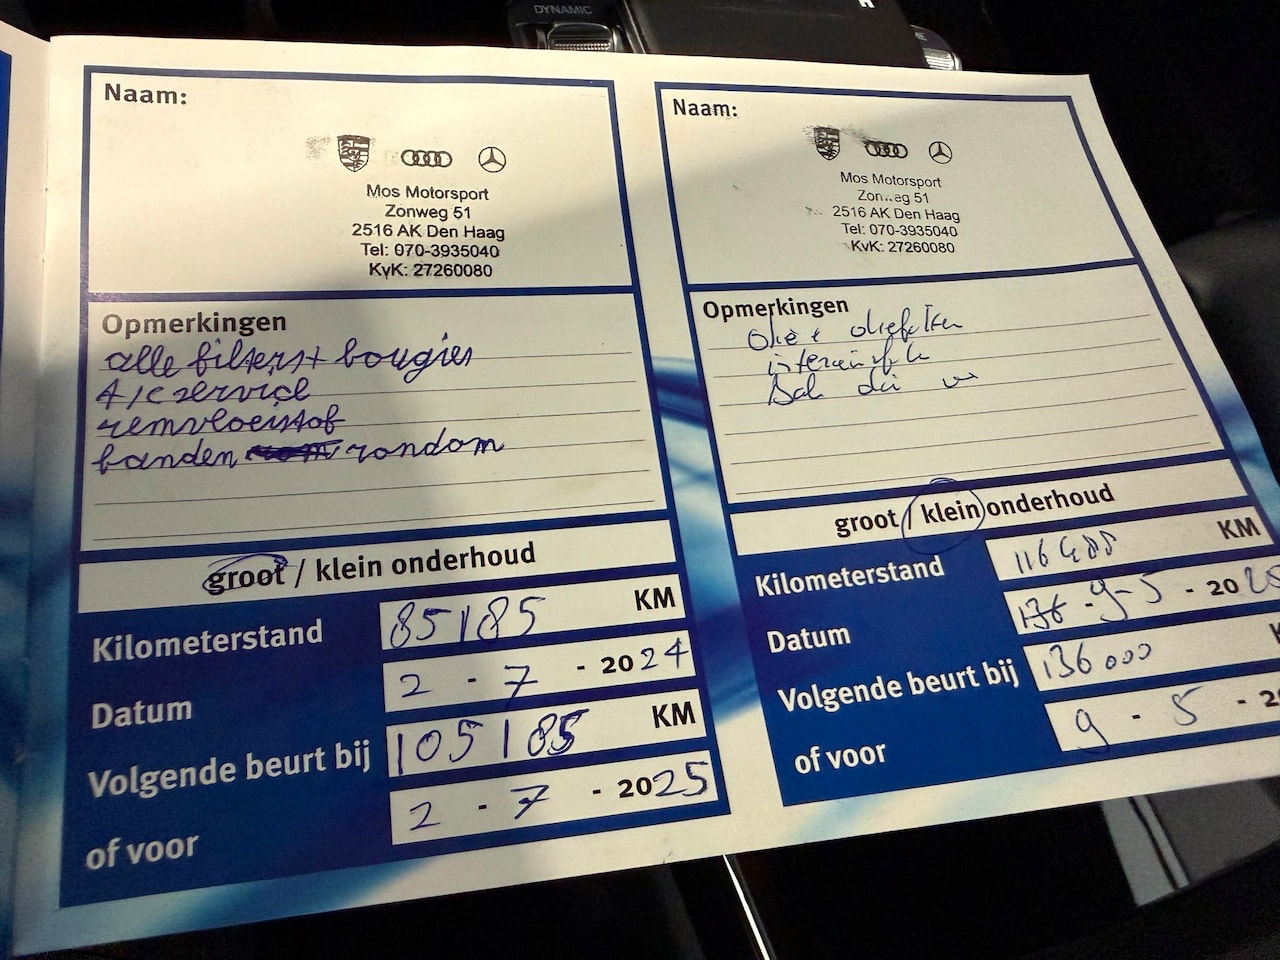 DYNAMIC
Naam:
Mos Motorsport
Zonweg 51
2516 AK Den Haag
Tel: 070-3935040
KvK: 27260080
Opmerkingen
alle filters+ bougies
A/C service
remvloeistof
banden rondom
groot / klein onderhoud
Kilometerstand 85185 KM
Datum 2 - 7 - 2024
Volgende beurt bij 105185 KM
of voor 2 - 7 - 2025
Naam:
Mos Motorsport
Zon..eg 51
2516 AK Den Haag
Tel: 070-3935040
KvK: 27260080
Opmerkingen
Olie + oliefilter
groot / klein onderhoud
Kilometerstand 116488 KM
Datum 9-5 - 2025
Volgende beurt bij 136000 K
of voor 9 - 5 - 2